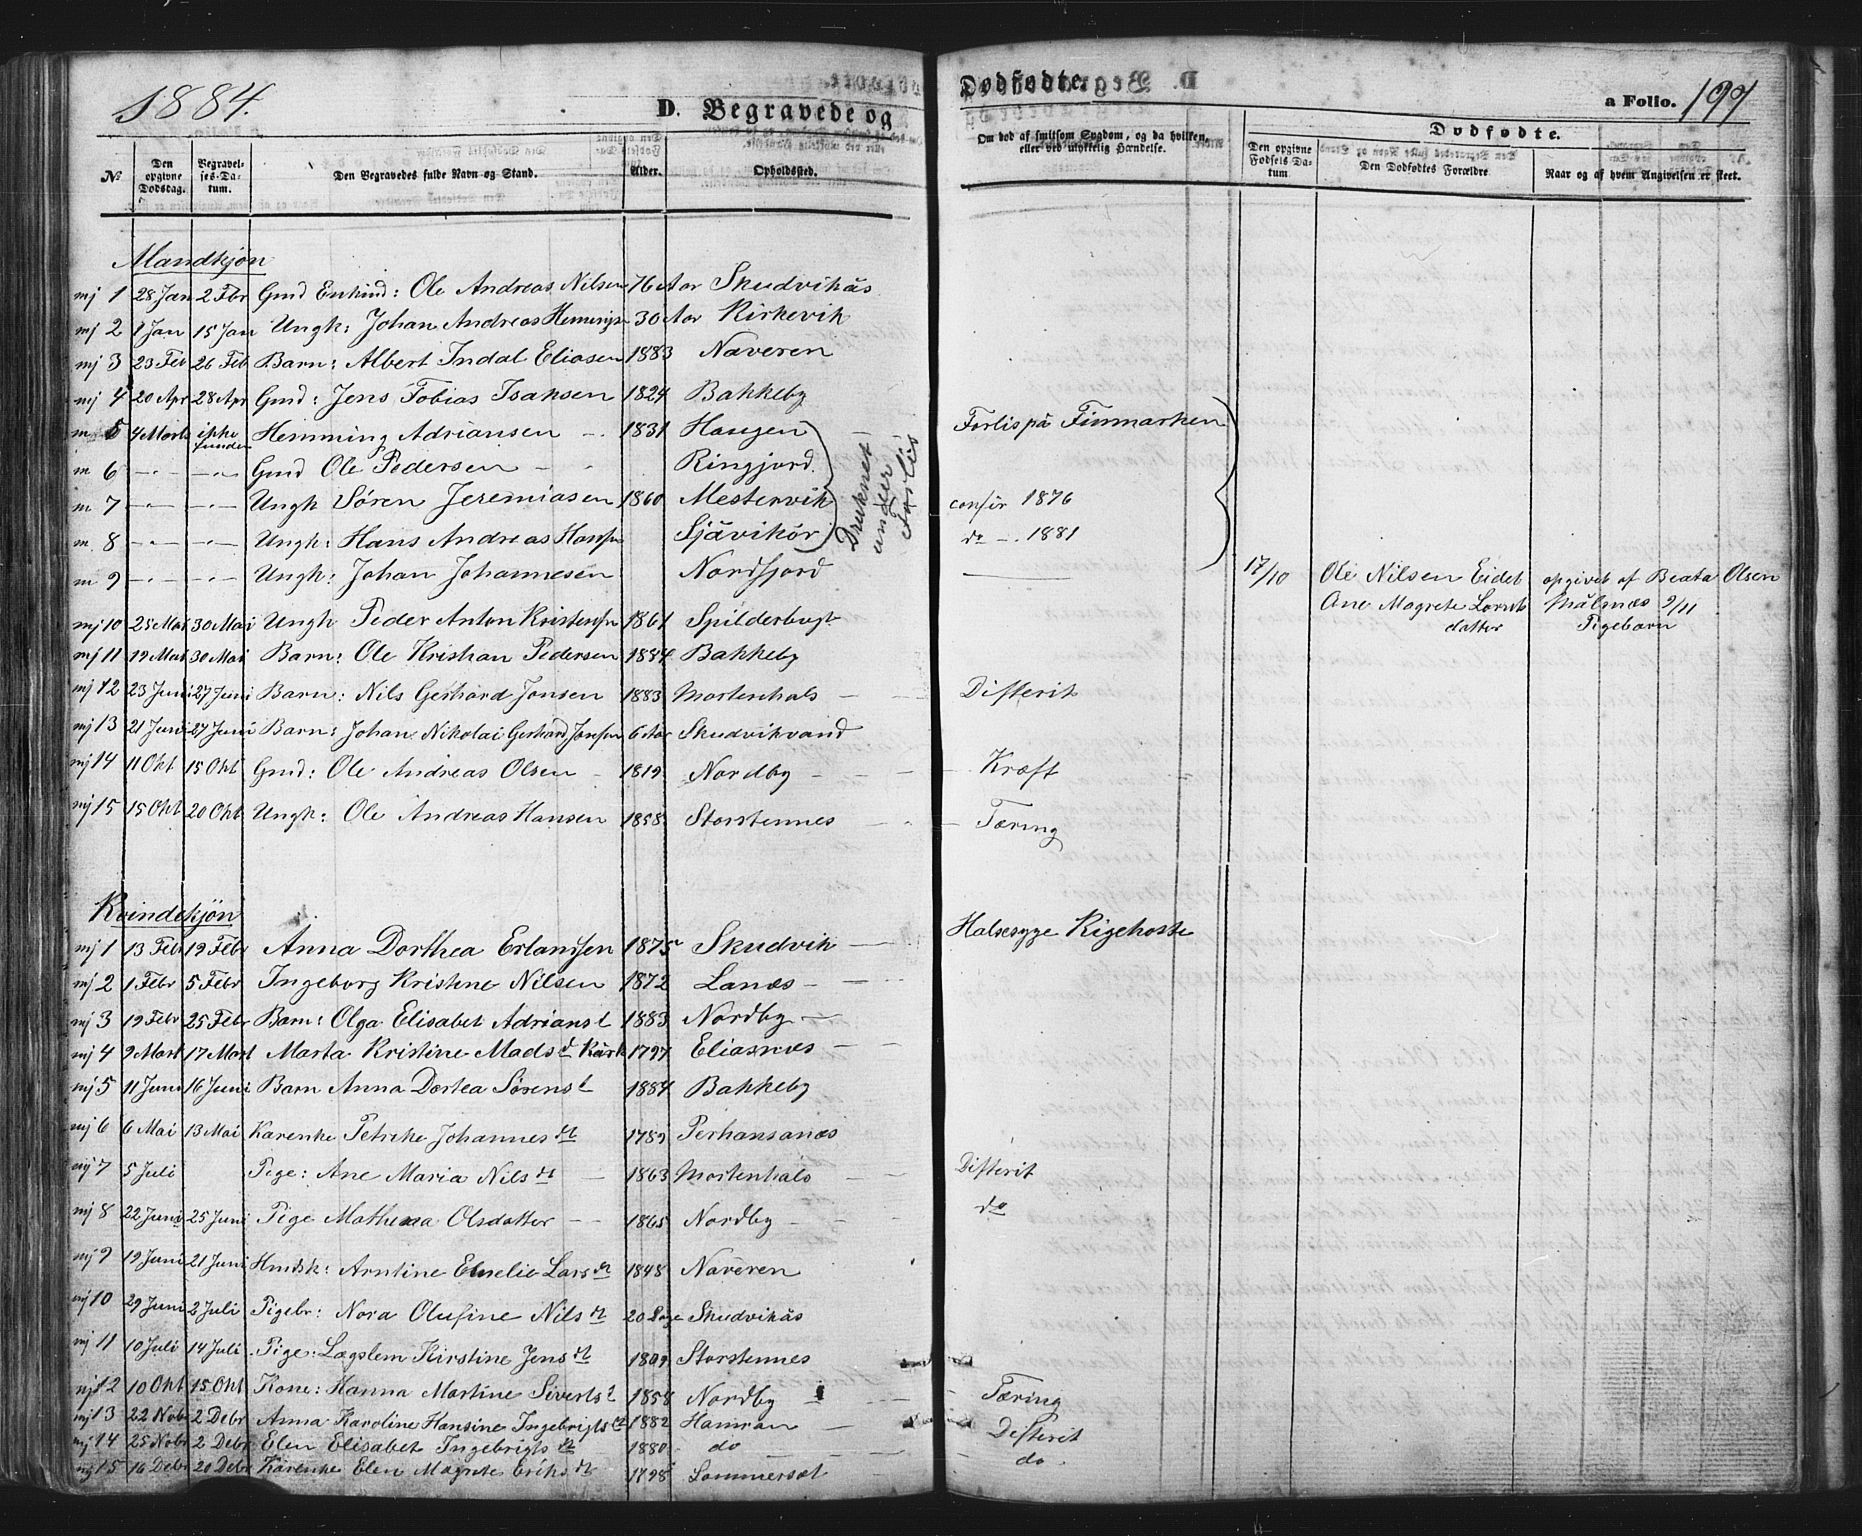 1884.
D. Begravede og
Dødfødte.
a Folio. 199
No
Den opgivne Dødsdag.
Begravelses-Datum.
Den Begravedes fulde Navn og Stand.
Alder.
Opholdssted.
Om død af smitsom Sygdom, og da hvilken, eller ved ulykkelig Hændelse.
Dødfødte.
Den opgivne Fødsels Datum
Den Dødfødtes Forældre
Naar og af hvem Angivelsen er skeet.
Mandkjøn
mj 1 28 Jan 2 Febr Gmd Enkind: Ole Andreas Nilsen 76 Aar Skudvikås
mj 2 1 Jan 15 Jan Ungk: Johan Andreas Hemmings 30 Aar Kirkevik
mj 3 23 Feb 26 Feb Barn: Albert Indal Eliasen 1883 Naveren
mj 4 20 Apr 28 Apr Gmd: Jens Tobias Isaksen 1824 Bakkeby
m 5 4 Marts ikke funden Hemming Adriansen 1831 Haugen Forlis på Finmarken
m 6 - " - - " - Gmd Ole Pedersen Ringjord
m 7 - " - - " - Ungk Søren Jeremiasen 1860 Mestervik confir 1876
m. 8 - " - - " - Ungk: Hans Andreas Hansen Sjåvikør do - . 1881
Druknet under Forlis
m 9 - " - - " - Ungk: Johan Johannesen Nordfjord 17/10 Ole Nilsen Eidet opgivet af Beata Olsen
Ane Magrete Lornts Målsnæs 9/11
datter Pigebarn
mj 10 25 Mai 30 Mai Ungk Peder Anton Kristensen 1861 Spilderbugt
mj 11 19 Mai 30 Mai Barn: Ole Kristian Pedersen 1884 Bakkeby
mj 12 23 Juni 27 Juni Barn: Nils Gerhard Jonsen 1883 Mortenhals Difterit
mj 13 21 Juni 27 Juni Barn: Johan Nikolai Gerhard Jonsen 6 Aar Skudvikvand
mj 14 11 Okt 15 Okt Gmd: Ole Andreas Olsen 1819 Nordby Kræft
mj 15 15 Okt 20 Okt Ungk: Ole Andreas Hansen 1858 Storstennes Tæring
Kvindekjøn
mj 1 13 Febr 19 Febr Anna Dorthea Erlandsen 1875 Skudvik Halsesyge Kigehoste
mj 2 1 Febr 5 Febr Ingeborg Kristine Nilsen 1872 Lanæs
mj 3 19 Febr 25 Febr Barn: Olga Elisabet Adrians 1883 Nordby
mj 4 9 Mart 17 Mart Marta Kristine Mads d Kårk 1797 Eliasnæs
mj 5 11 Juni 16 Juni Barn Anna Dortea Sørens 1884 Bakkeby
mj 6 6 Mai 13 Mai Karenke Petrike Johannes dt 1789 Perhansanæs
mj 7 5 Juli Pige: Ane Maria Nils dt 1863 Mortenhals Difterit
mj 8 22 Juni 25 Juni Pige Mathena Olsdatter 1865 Nordby do
mj 9 19 Juni 21 Juni Hmdsk: Arntine Emelie Lars dt 1848 Naveren
mj 10 29 Juni 2 Juli Pigebr: Nora Olufine Nils dt 20 Dage Skudvikås
mj 11 10 Juli 14 Juli Pige: Lægslem Kirstine Jens dt 1809 Storstennes
mj 12 10 Okt 15 Okt Kone: Hanna Martine Siverts 1858 Nordby Tæring
mj 13 22 Nobr 2 Debr Anna Karoline Hansine Ingebrigts dt 1882 Hamran Difterit
mj 14 25 Nobr 2 Debr Elen Elisabet Ingebrigts dt 1880 do do
mj 15 16 Debr 20 Debr Karenke Elen Magrete Eriks dt 1798 Sommersæt